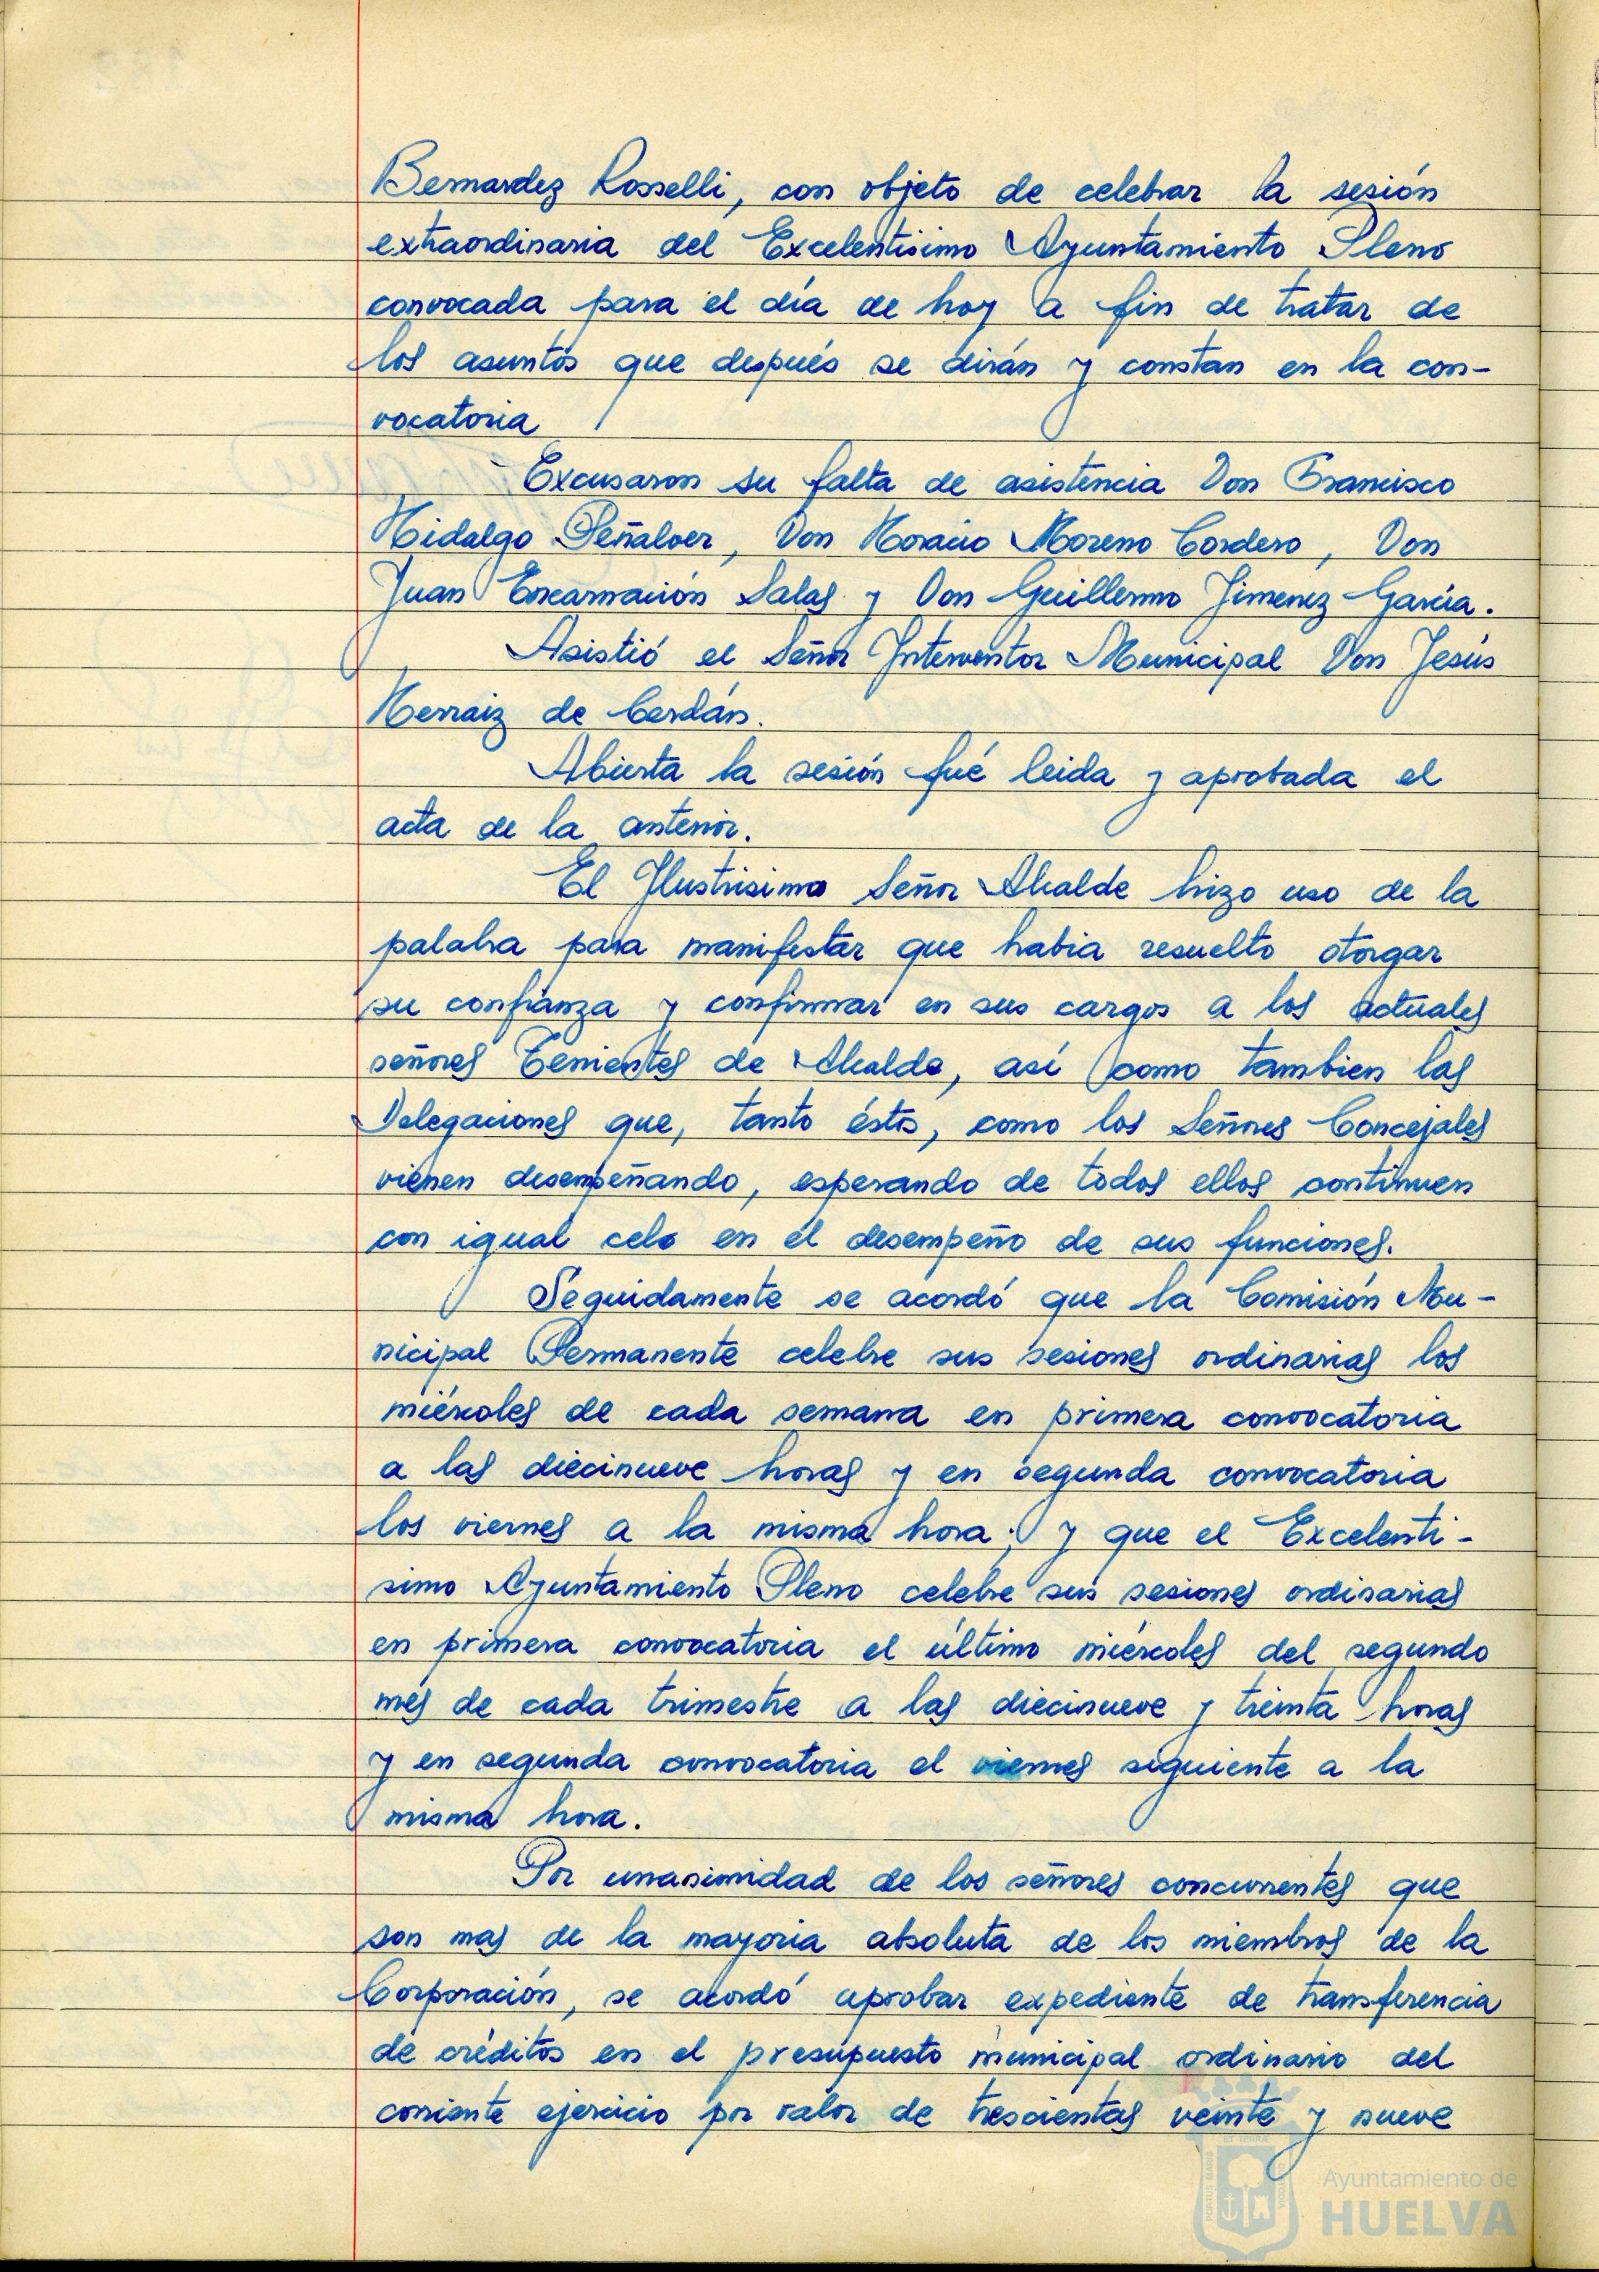 Bernardez Rosselli, con objeto de celebrar la sesión
extraordinaria del Excelentisimo Ayuntamiento Pleno
convocada para el día de hoy a fin de tratar de
los asuntos que después se dirán y constan en la con-
vocatoria
Excusaron su falta de asistencia Don Francisco
Hidalgo Peñalver, Don Horacio Moreno Cordero, Don
Juan Encarnación Salas y Don Guillermo Jimenez García.
Asistió el Señor Interventor Municipal Don Jesús
Herraiz de Cerdán.
Abierta la sesión fué leida y aprobada el
acta de la anterior.
El Ilustrisimo Señor Alcalde hizo uso de la
palabra para manifestar que habia resuelto otorgar
su confianza y confirmar en sus cargos a los actuales
señores Tenientes de Alcalde, así como tambien las
Delegaciones que, tanto éstos, como los Señores Concejales
vienen desempeñando, esperando de todos ellos continuen
con igual celo en el desempeño de sus funciones.
Seguidamente se acordó que la Comisión Mu-
nicipal Permanente celebre sus sesiones ordinarias los
miércoles de cada semana en primera convocatoria
a las diecinueve horas y en segunda convocatoria
los viernes a la misma hora; y que el Excelenti-
simo Ayuntamiento Pleno celebre sus sesiones ordinarias
en primera convocatoria el último miércoles del segundo
mes de cada trimestre a las diecinueve y treinta horas
y en segunda convocatoria el viernes siguiente a la
misma hora.
Por unanimidad de los señores concurrentes que
son mas de la mayoria absoluta de los miembros de la
Corporación, se acordó aprobar expediente de transferencia
de créditos en el presupuesto municipal ordinario del
corriente ejercicio por valor de trescientas veinte y nueve
Ayuntamiento de
HUELVA